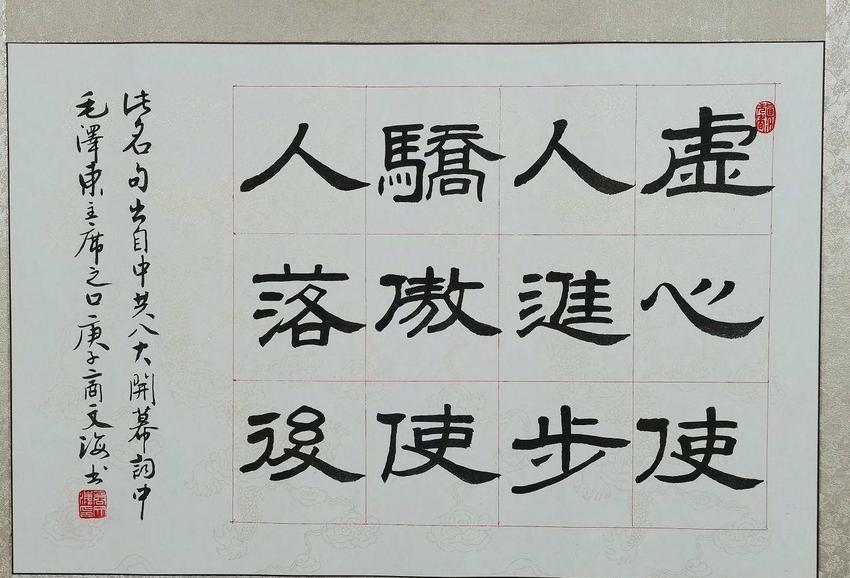 虛心使
人進步
驕傲使
人落後
此名句出自中共八大開幕詞中
毛澤東主席之口庚子商文海书